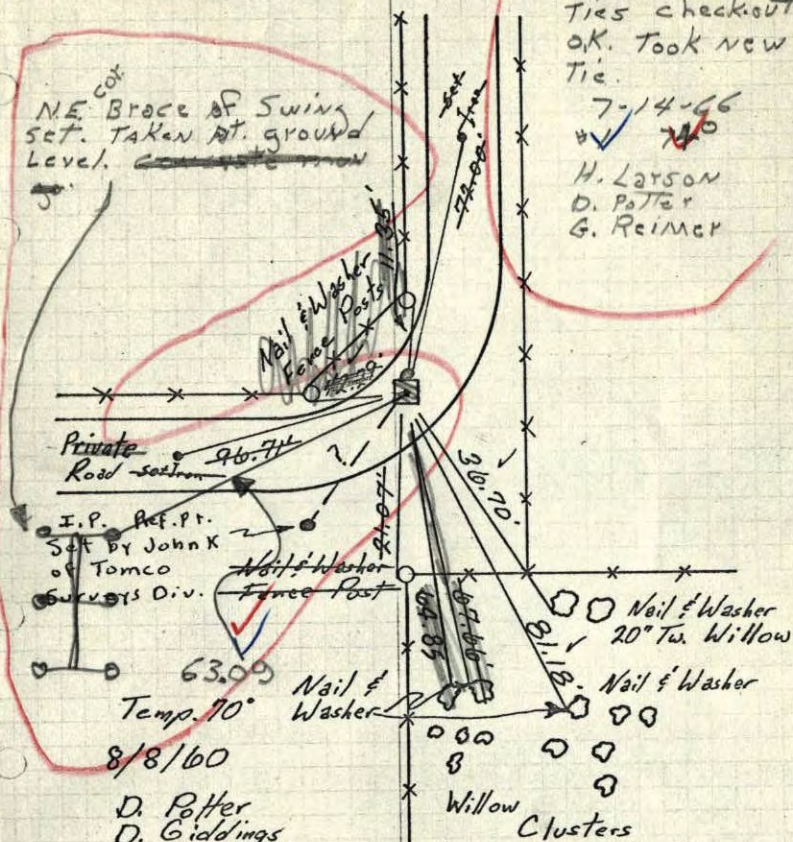 Ties check.out
O.K. Took new
Tie.
7-14-66
#1 74°
H. Larson
D. Potter
G. Reimer
cor.
N.E. Brace of Swing
set. Taken At. ground
Level.
set
Iron
72.00'
11.35'
Nail & Washer
Fence Posts
Private
Road set Iron
96.74'
?
36.70'
21.07'
I.P. Ref. Pt.
Set by John K
of Tomco
Surveys Div.
Nail & Washer
Fence Post
64.83
67.66'
81.18'
Nail & Washer
20" Tw. Willow
63.09
Nail &
Washer
Nail & Washer
Temp. 70°
8/8/60
D. Potter
D. Giddings
Willow
Clusters